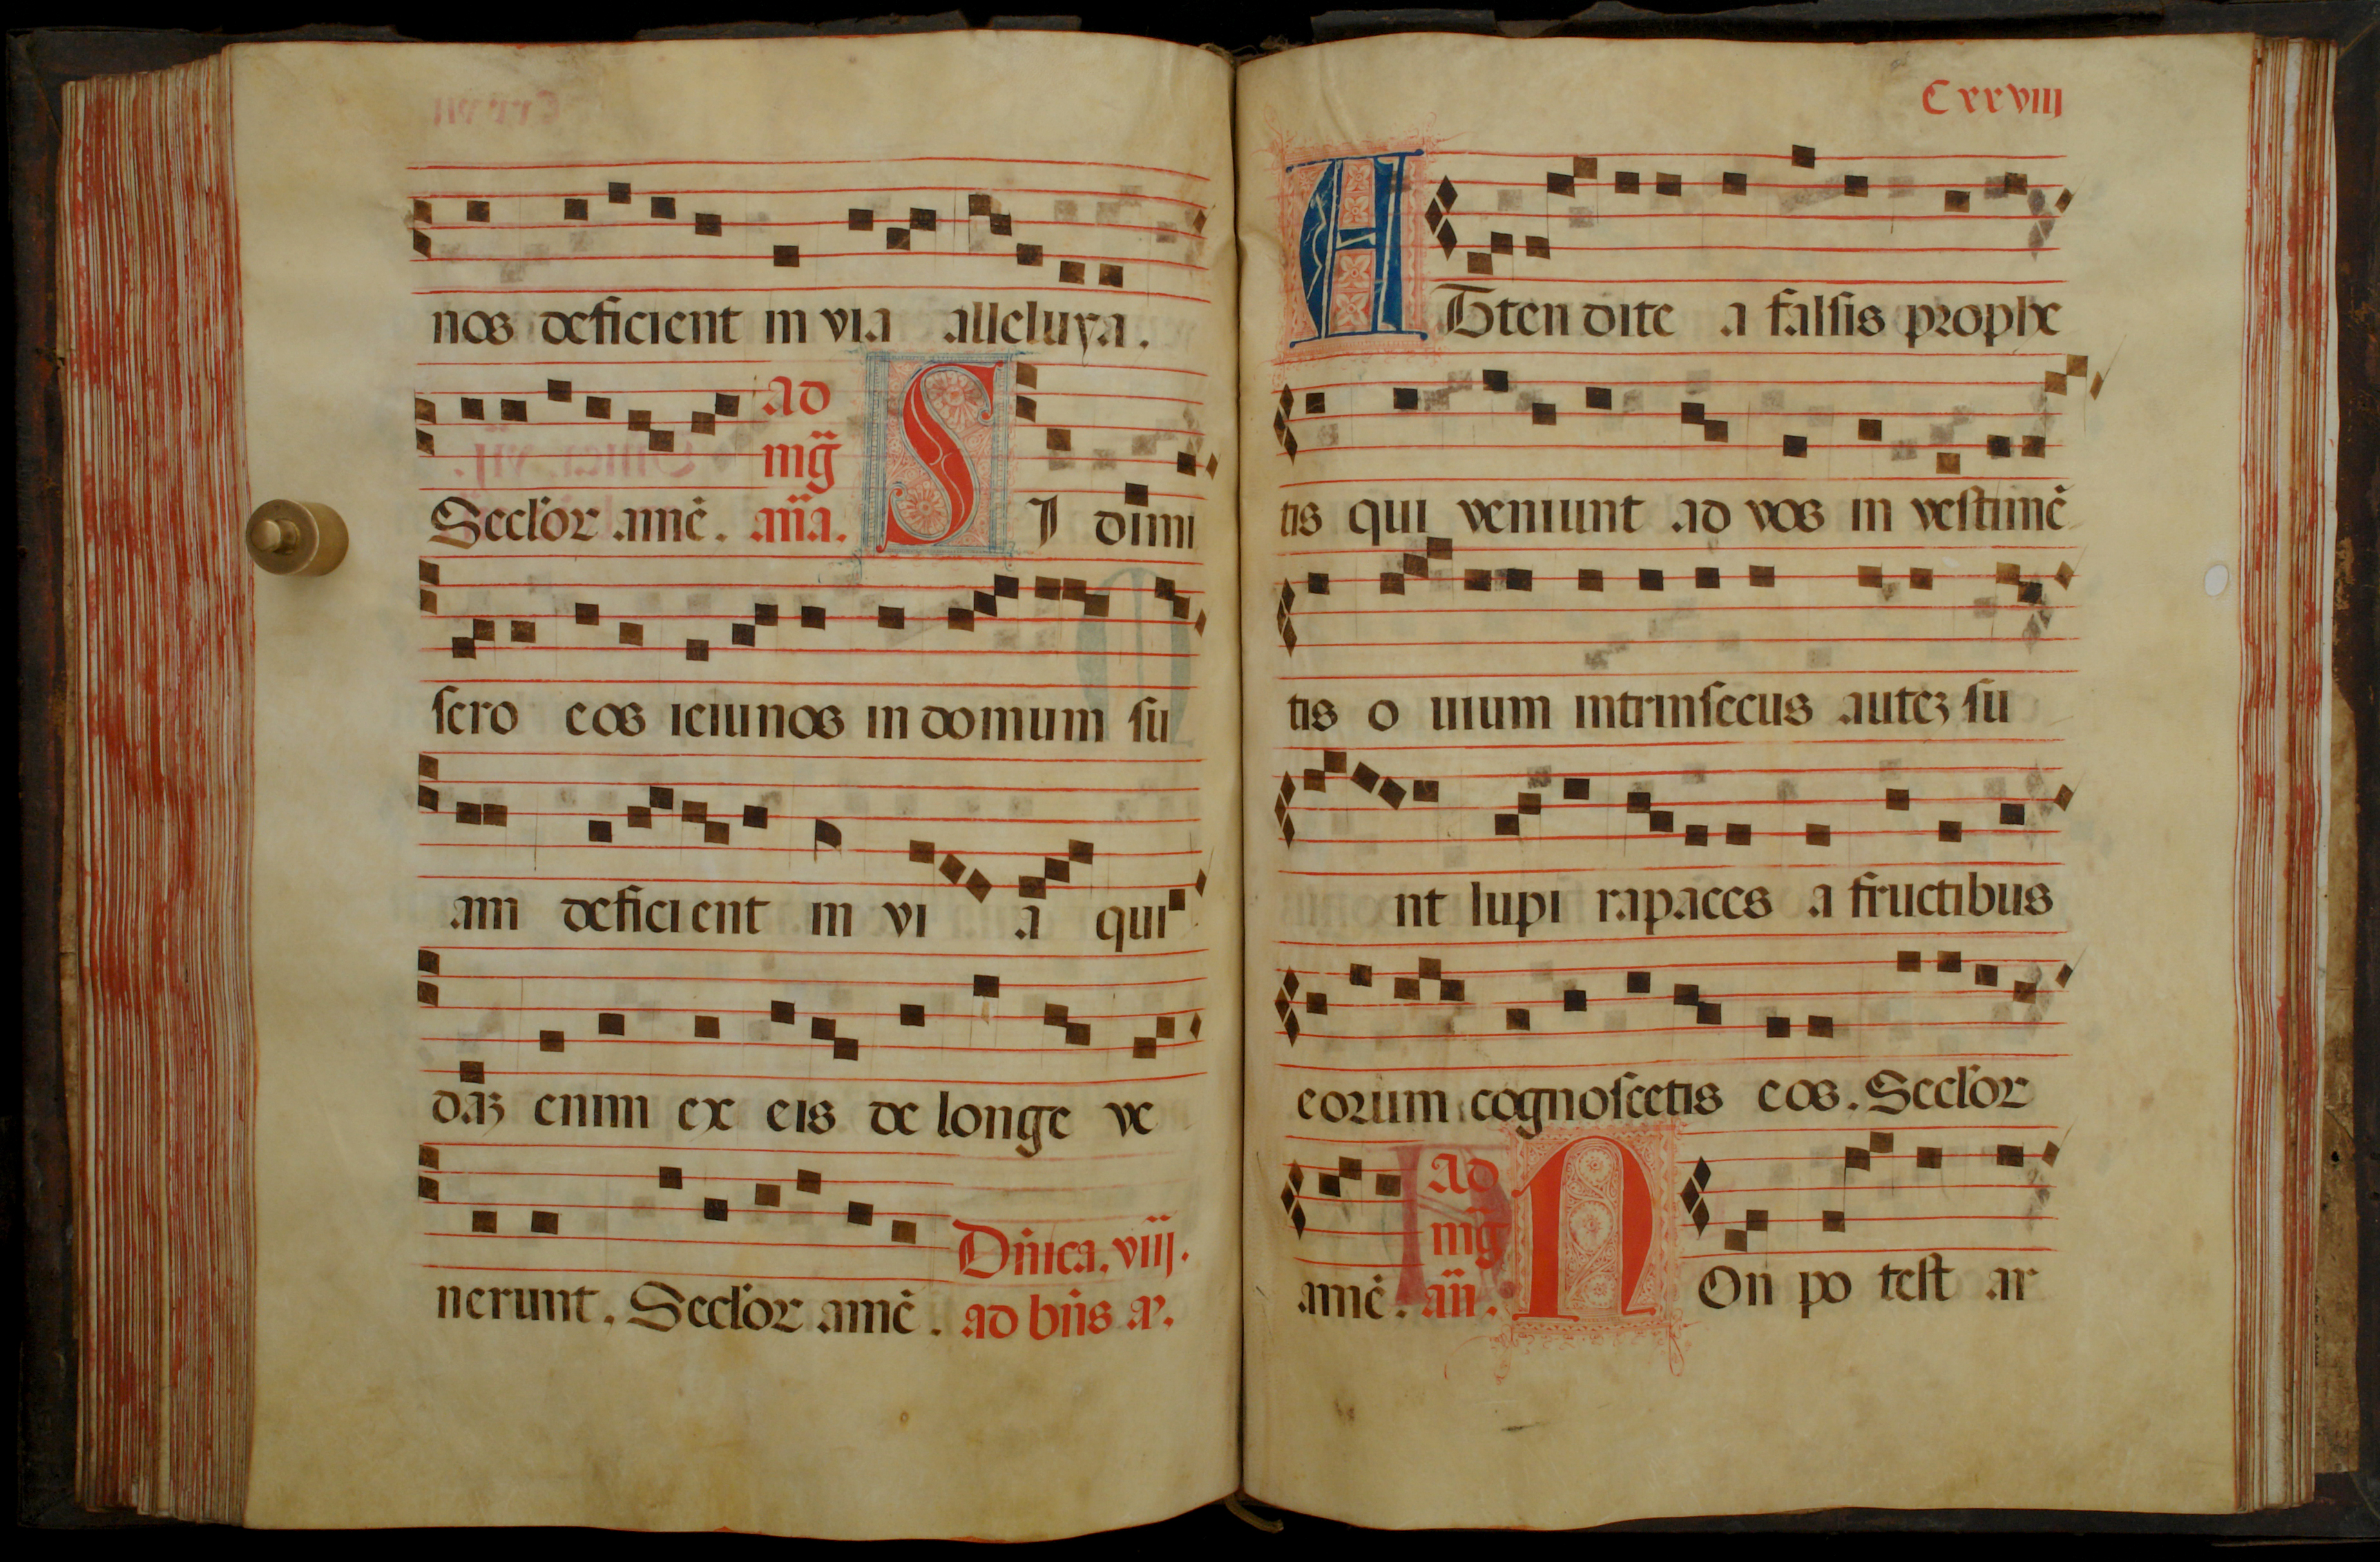 nos deficient in via alleluya.
Seclor amē. ad mḡ ana. SI dimi
sero eos ieiunos in domum su
am deficient in vi a qui
daz enim ex eis de longe ve
nerunt. Seclor amē. Dnica. viij. ad bn̄s a.
Cxxviij
Atten dite a falsis prophe
tis qui veniunt ad vos in vestimē
tis o uium intrinsecus autez su
nt lupi rapaces a fructibus
eorum cognoscetis eos. Seclor
amē. ad mḡ an. NOn po test ar